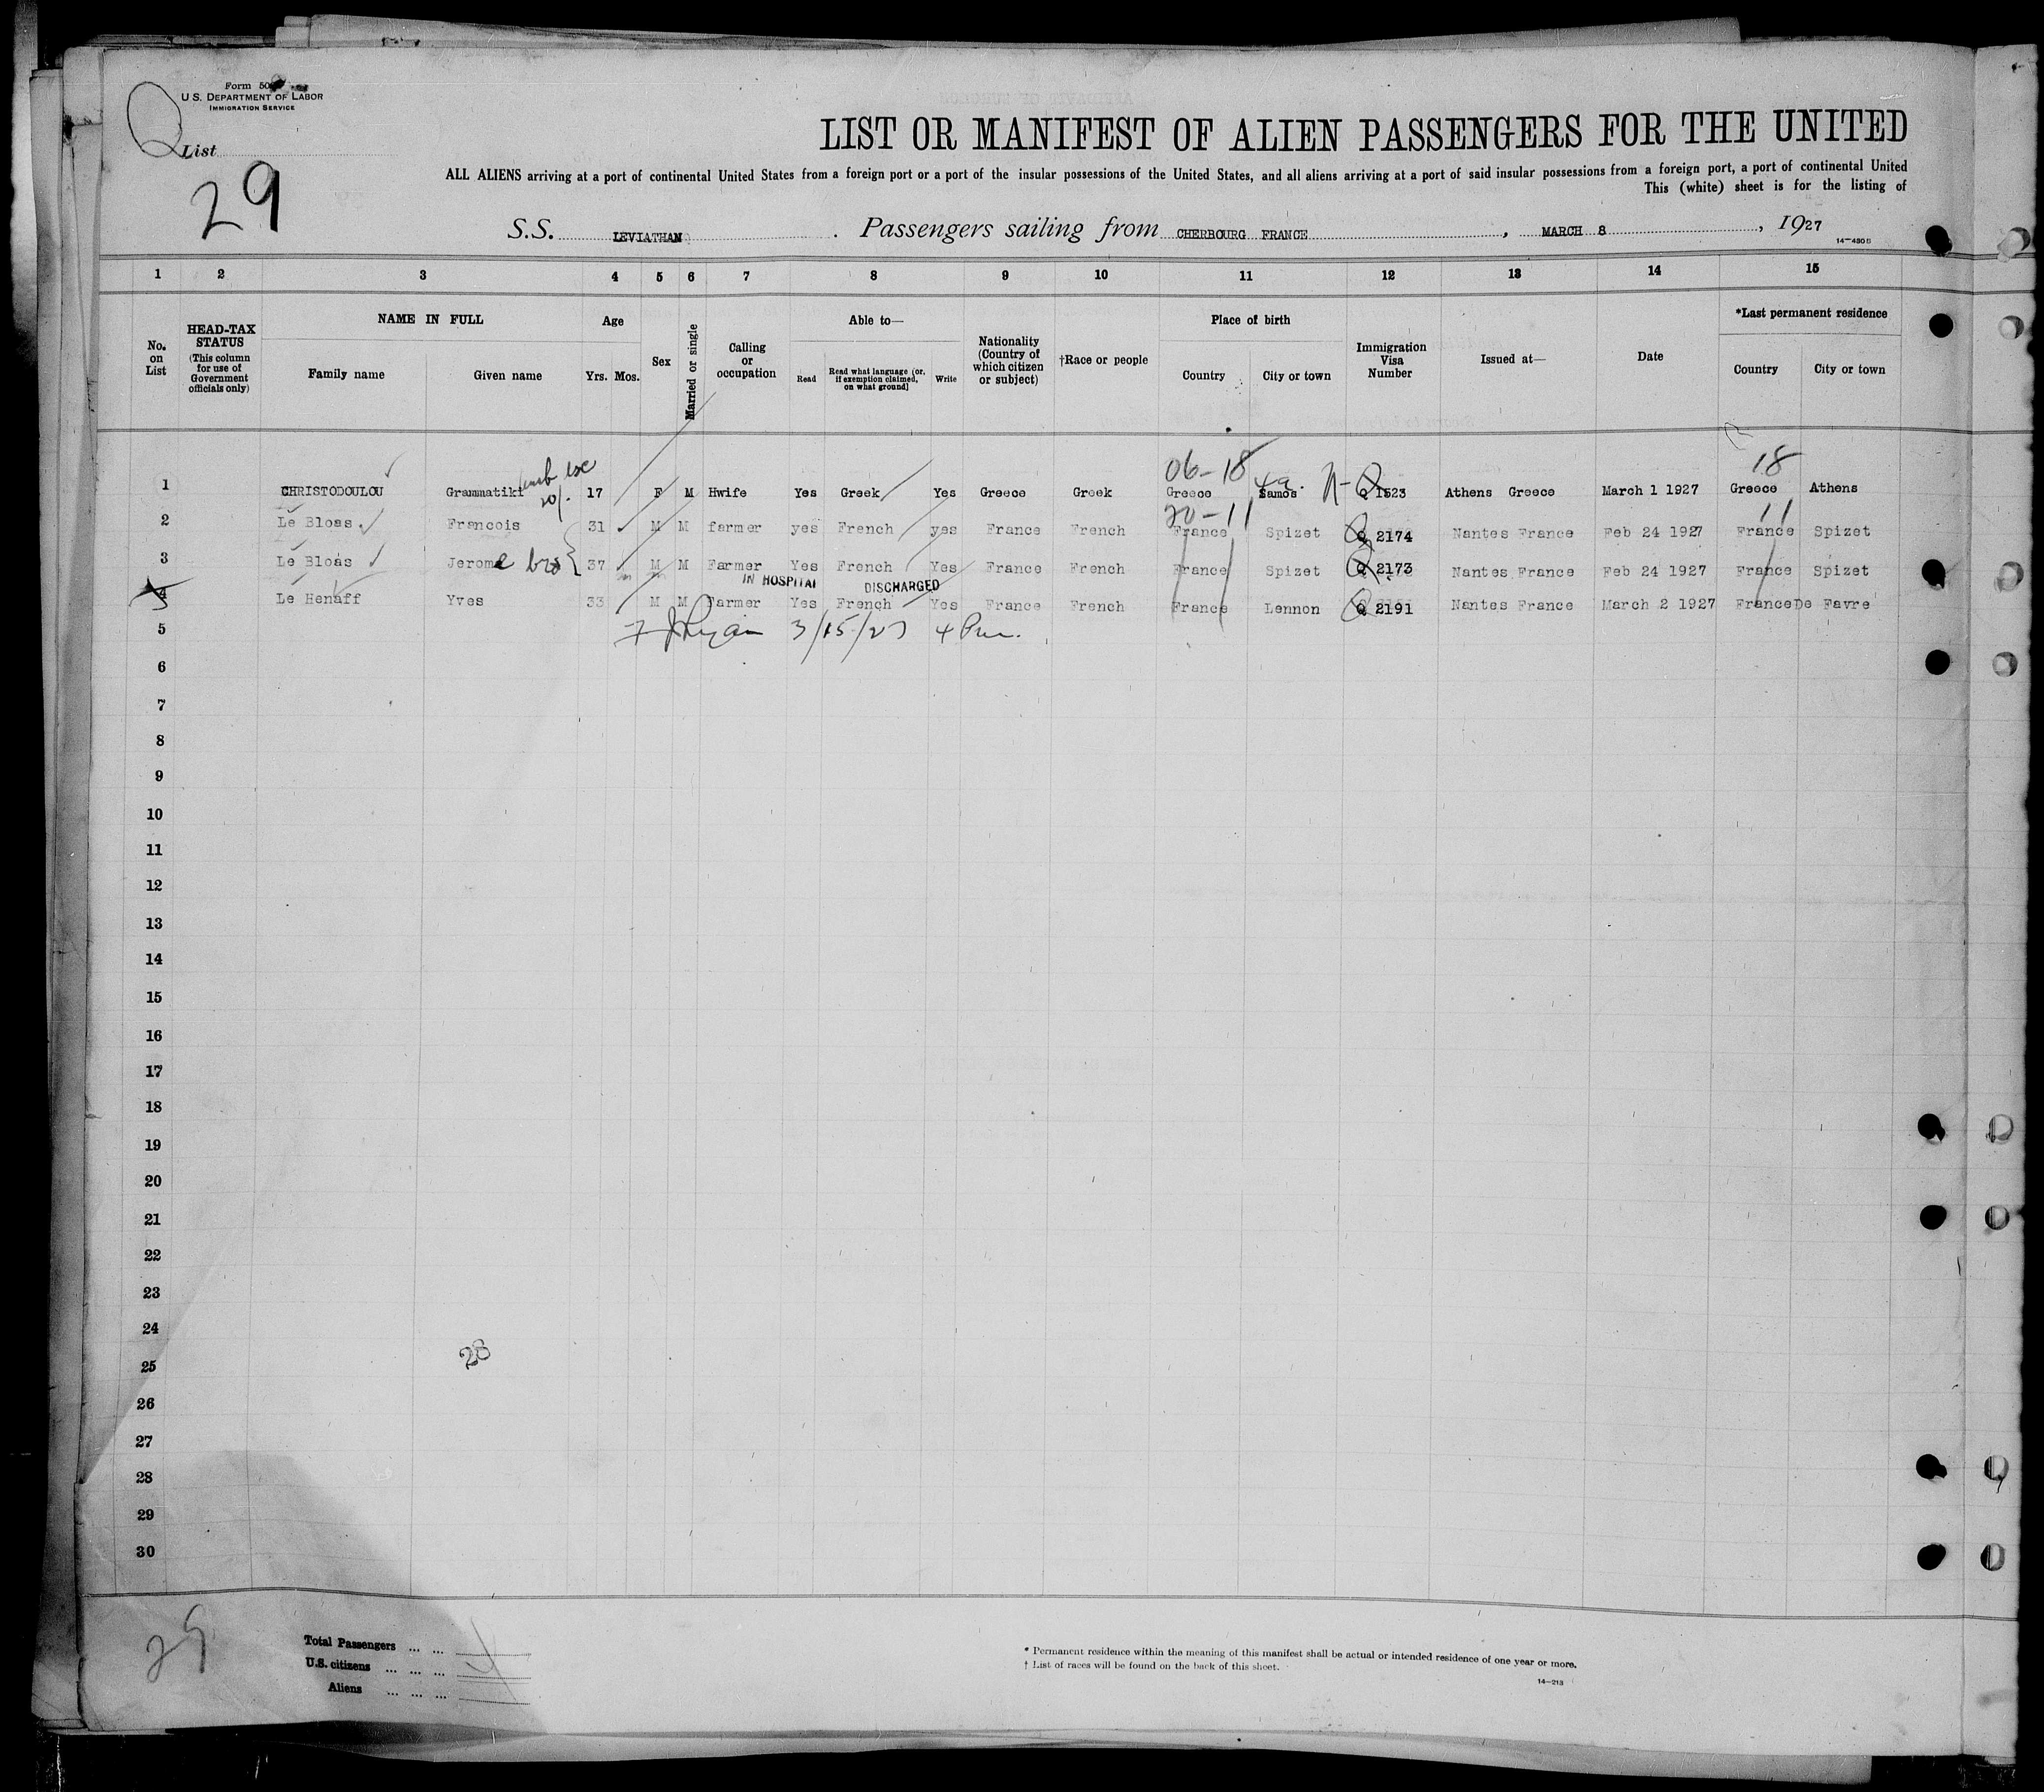 Form 50
U.S. DEPARTMENT OF LABOR
IMMIGRATION SERVICE
List
29
LIST OR MANIFEST OF ALIEN PASSENGERS FOR THE UNITED
ALL ALIENS arriving at a port of continental United States from a foreign port or a port of the insular possessions of the United States, and all aliens arriving at a port of said insular possessions from a foreign port, a port of continental United
This (white) sheet is for the listing of
S.S. LEVIATHAN . Passengers sailing from CHERBOURG FRANCE , MARCH 8 , 1927
14—430B
1 2 3 4 5 6 7 8 9 10 11 12 13 14 15
No. on List HEAD-TAX STATUS (This column for use of Government officials only) NAME IN FULL Family name Given name Age Yrs. Mos. Sex Married or single Calling or occupation Able to— Read Read what language [or, if exemption claimed, on what ground] Write Nationality (Country of which citizen or subject) †Race or people Place of birth Country City or town Immigration Visa Number Issued at— Date *Last permanent residence Country City or town
06-18 18
1 CHRISTODOULOU Grammatiki 17 F M Hwife Yes Greek Yes Greece Greek Greece Samos Q 1523 Athens Greece March 1 1927 Greece Athens
20-11 11
2 Le Bloas Francois 31 M M farmer yes French yes France French France Spizet Q 2174 Nantes France Feb 24 1927 France Spizet
3 Le Bloas Jerome bro 37 M M Farmer Yes French Yes France French France Spizet Q 2173 Nantes France Feb 24 1927 France Spizet
IN HOSPITAL DISCHARGED
4 Le Henaff Yves 33 M M Farmer Yes French Yes France French France Lennon Q 2191 Nantes France March 2 1927 France De Favre
5 3/15/27 4 Pm.
6
7
8
9
10
11
12
13
14
15
16
17
18
19
20
21
22
23
24
28
25
26
27
28
29
30
29
Total Passengers ... ...
U.S. citizens ... ... ...
Aliens ... ... ...
* Permanent residence within the meaning of this manifest shall be actual or intended residence of one year or more.
† List of races will be found on the back of this sheet.
14—213